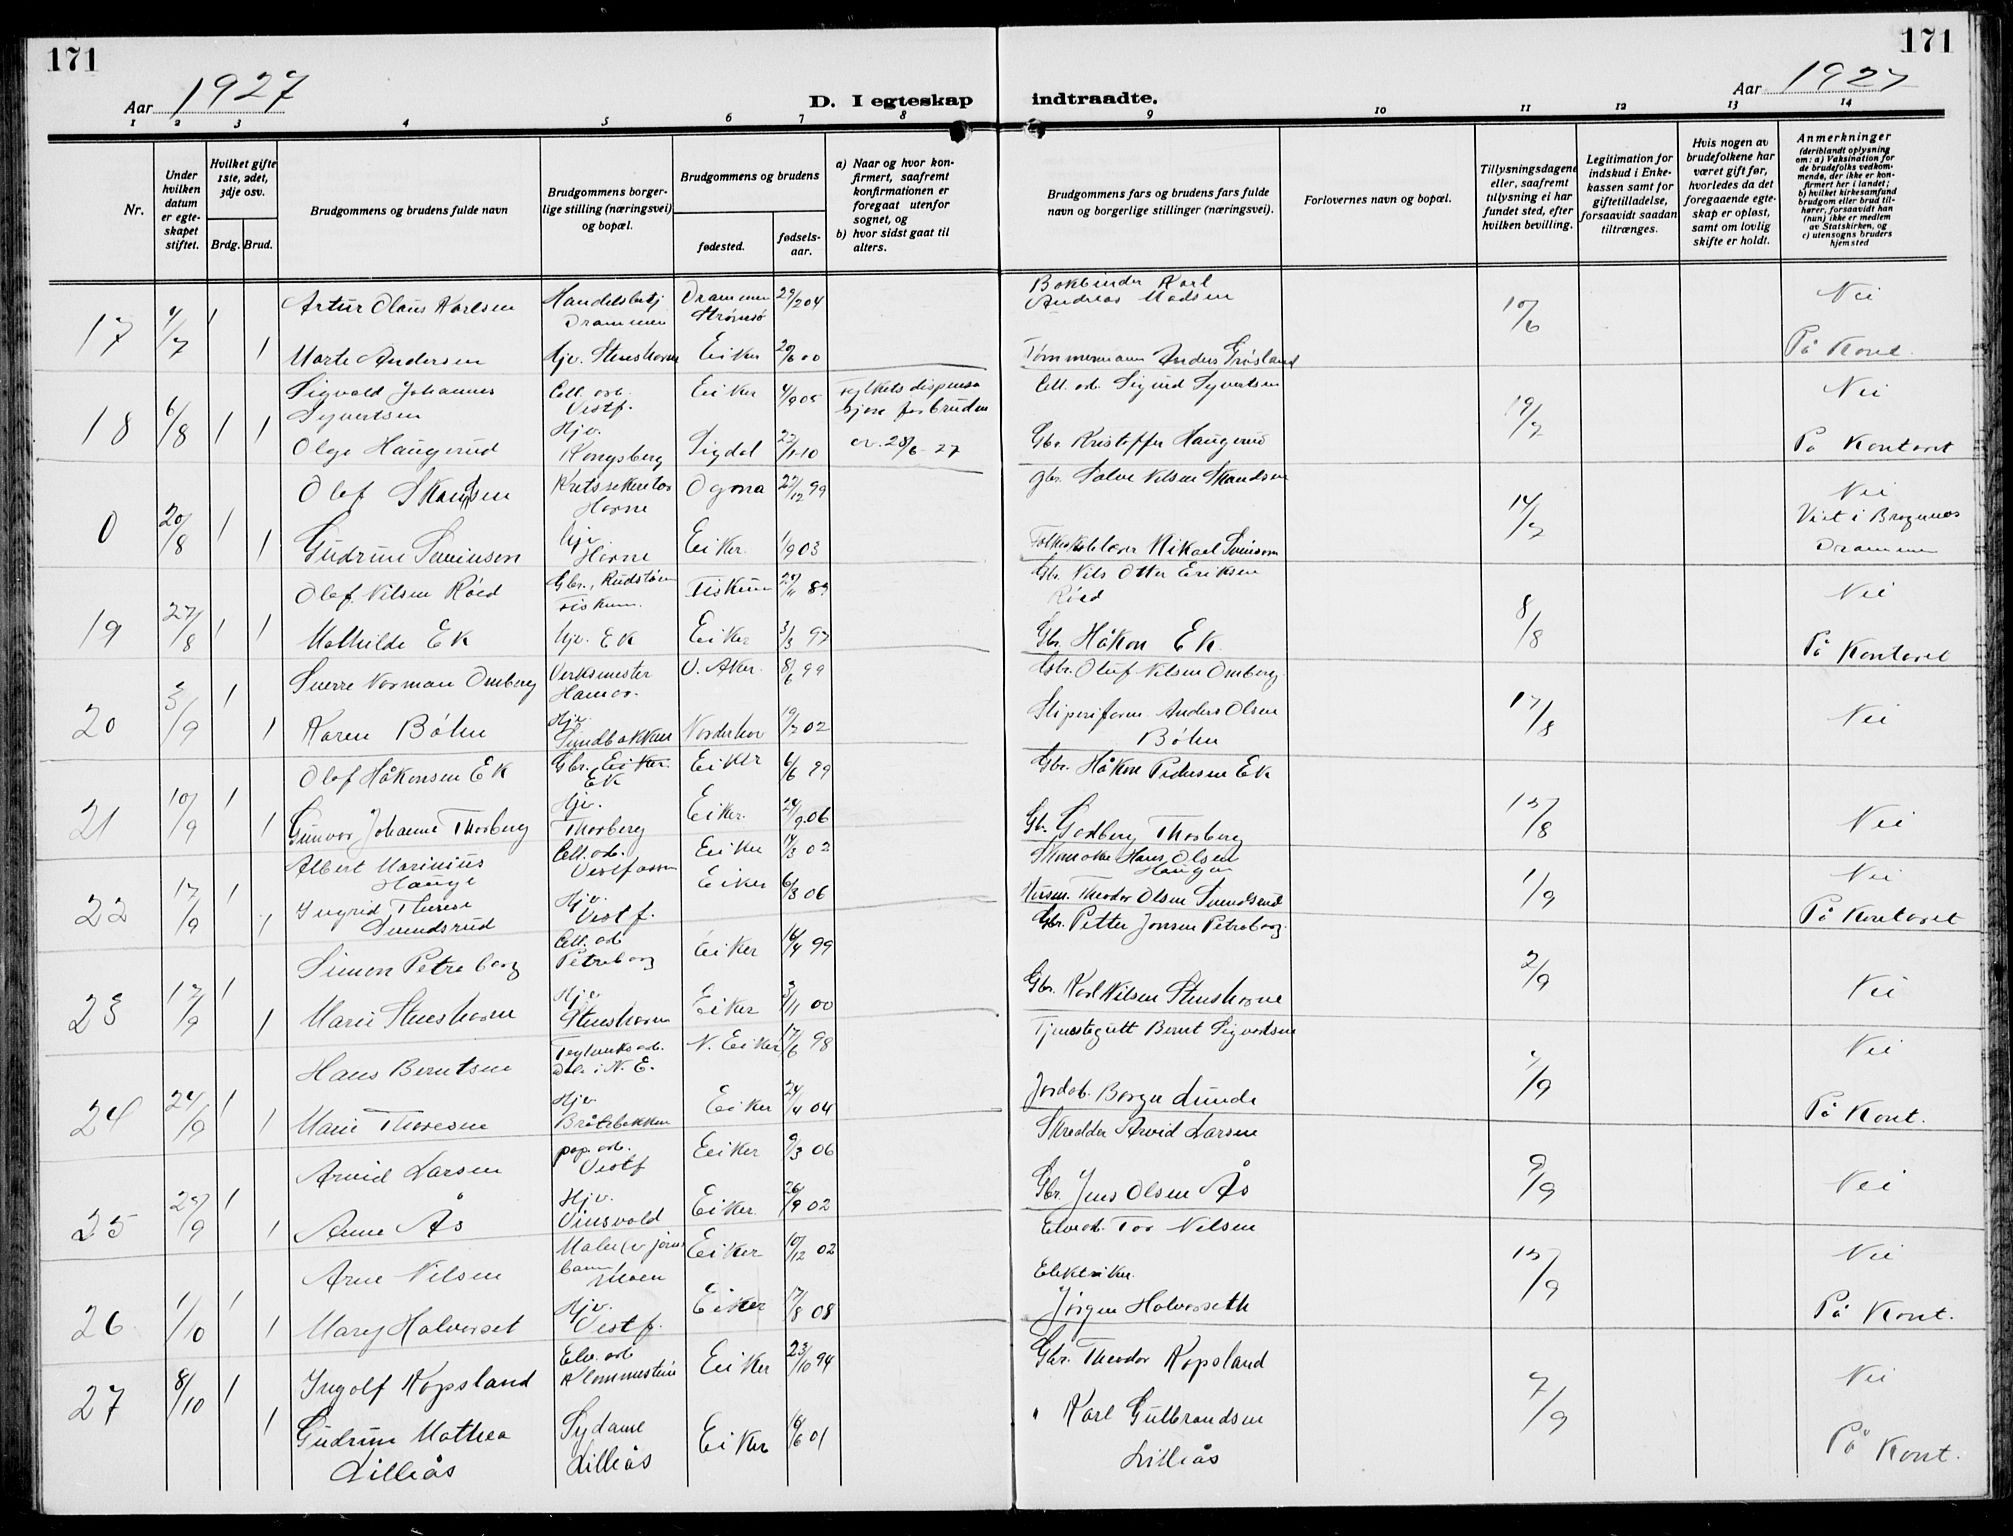 171
171
Aar 1927
D. I egteskap
indtraadte.
Aar 1927
1 2 3 4 5 6 7 8 9 10 11 12 13 14
Nr.
Under hvilken datum er egteskapet stiftet.
Hvilket gifte 1ste, 2det, 3dje osv.
Brdg. Brud.
Brudgommens og brudens fulde navn
Brudgommens borgerlige stilling (næringsvei) og bopæl.
Brudgommens og brudens
fødested.
fødselsaar.
a) Naar og hvor konfirmert, saafremt konfirmationen er foregaat utenfor sognet, og
b) hvor sidst gaat til alters.
Brudgommens fars og brudens fars fulde navn og borgerlige stillinger (næringsvei).
Forlovernes navn og bopæl.
Tillysningsdagene eller, saafremt tillysning ei har fundet sted, efter hvilken bevilling.
Legitimation for indskud i Enkekassen samt for giftetilladelse, forsaavidt saadan tiltrænges.
Hvis nogen av brudefolkene har været gift før, hvorledes da det foregaaende egteskap er opløst, samt om lovlig skifte er holdt.
Anmerkninger
(deriblandt oplysning om: a) Vaksination for de brudefolks vedkommende, der ikke er konfirmert her i landet; b) hvilket kirkesamfund brudgom eller brud tilhører, forsaavidt han (hun) ikke er medlem av Statskirken, og c) utensogns bruders hjemsted
Artur Olaus Karlsen Handelsbetj Drammen Drammen Strømsø 29/2 04 Bokbinder Karl Andreas Madsen Nei
17 4/7 1 1 10/6
Marte Andersen Hjv. Stenshorne Eiker 20/6 00 Tømmermann Anders Grøsland På Kont.
Sigvald Johannes Syvertsen Cell. arb. Vestf. Eiker 4/9 05 fylkets dispensa for bruden Cell. arb. Sigurd Syvertsen Nei
18 6/8 1 1 19/7
Olga Haugerud Hjv. Kongsberg Sigdal 22/1 10 av 28/6 - 27 Gbr. Kristoffer Haugerud På Kontoret
Olaf Skandsen Kretssekretær Horne Ogna 27/12 99 gbr. Salve Nilsen Skandsen Nei
0 20/8 1 1 14/7 Viet i Bragernes Drammen
Gudrun Svenson Hjv. Horne Eiker 1/9 03 Folkeskolelærer Mikael Svenson
Olaf Nilsen Røed Gbr., Rudstøen Fiskum. Fiskum 29/11 83 Gbr. Nils Otter Eriksen Röed Nei
19 27/8 1 1 8/8
Mathilde Ek hjv. Ek Eiker 3/3 97 Gbr. Håkon Ek. På Kontoret
Sverre Norman Omberg Verksmester Hamar. V. Aker. 8/6 99 Gbr. Oluf Nilsen Omberg
20 3/9 1 1 17/8 Nei
Karen Bøhn Hjv. Sundbakken Norderhov 19/7 02 Sliperiform. Anders Olsen Bøhn
Olaf Håkonsen Ek Gbr. Eiker. Ek Eiker 6/6 99 Gbr. Håkon Pedersen Ek
21 10/9 1 1 15/8 Nei
Gunvor Johanne Thorberg Hjv. Thorberg Eiker. 24/9 06 Gbr. Godberg Thorberg
Albert Marinius Hauge Cell. arb. Vestfossen Eiker 14/3 02 Skomaker Hans Olsen Haugen Nei
22 17/9 1 1 1/9
Ingrid Therese Svendsrud Hjv. Vestf. Eiker 6/8 06 Theodor Olsen Svendsrud På Kontoret
Simon Petreborg Cell. arb Petreborg Eiker 16/4 99 Gbr. Petter Jonsen Petreborg.
23 17/9 1 1 2/9 Nei
Marie Stenshorne Hjv Stenshorne Eiker 3/11 00 Gbr. Karl Nilsen Stenshorne
Hans Berntsen Teglverksarb. i N. E. N. Eiker 17/6 98 Tjenestegutt Bernt Sigvartsen Nei
24 24/9 1 1 /9
Marie Thoresen Hjv Bråtebakken Eiker 24/4 04 Jordarb. Borger Lunde På Kont.
Arvid Larsen pap. arb. Vestf Eiker 9/3 06 Skredder Arvid Larsen
25 29/9 1 1 9/9 Nei
Anne Ås Hjv. Vinsvold Eiker. 26/9 02 Gbr. Jens Olsen Ås
Arne Nilsen Maler (v jernbanen) Moen Eiker 10/12 02 Elvearb. Tor Nilsen Nei
26 1/10 1 1 15/9
Mary Halvorset Hjv. Vestf. Eiker 17/8 08 Elektriker. Jørgen Halvorseth På Kont.
Ingolf Kopsland Elv. arb Klommestein Eiker 23/10 94 Gbr. Theodor Kopsland Nei
27 8/10 1 1 7/9
Gudrun Mathea Lilleås Sydame Lilleås Eiker 6/6 01 " Karl Gulbrandsen Lilleås På Kont.